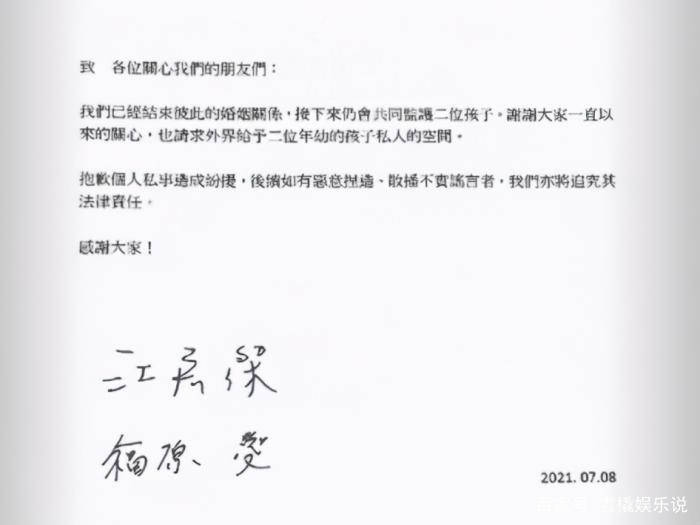 致　各位關心我們的朋友們：
我們已經結束彼此的婚姻關係，接下來仍會共同監護二位孩子。謝謝大家一直以
來的關心，也請求外界給予二位年幼的孩子私人的空間。
抱歉個人私事造成紛擾，後續如有惡意捏造、散播不實謠言者，我們亦將追究其
法律責任。
感謝大家！
江宏傑
福原 愛
2021. 07.08
娱乐说